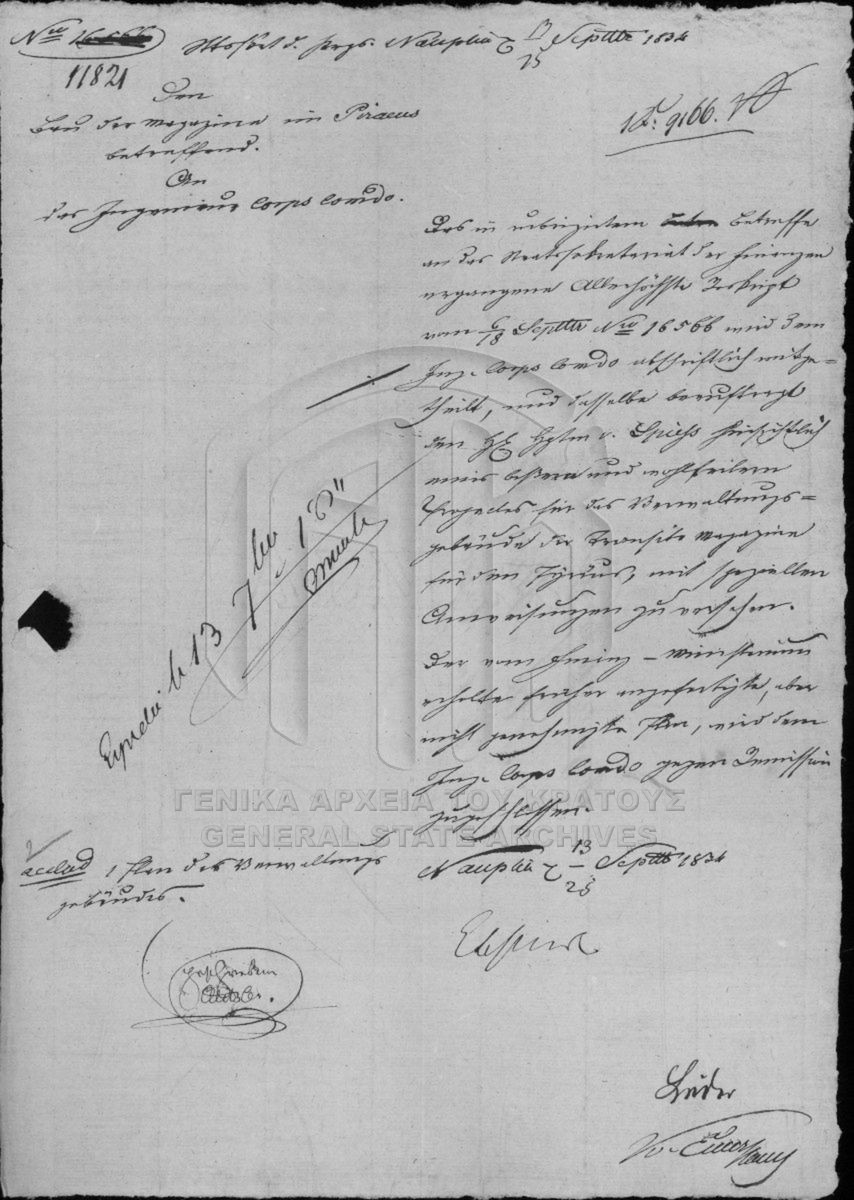 Nro 16566
11821
Nauplia d. 13/25 Septbr 1834
Den
Bau der Magazine im Piraeus
betreffend.
An
das Ingenieur Corps Comdo.
9166.
Das in rubrizirtem Betreffe
an das Staatssekretariat der Finanzen
ergangene Allerhöchste Reskript
vom 6/18 Septbr Nro 16566 wird dem
Ing. Corps Comdo abschriftlich mitge=
theilt, und dasselbe beauftragt
den Hptm v. Spiess hinsichtlich
eines bessern und wohlfeilern
Projectes für das Verwaltungs=
gebäude der Transito Magazine
für den Pyräus, mit speziellen
Anweisungen zu versehen.
Der vom Finanz-Ministerium
früher angefertigte, aber
nicht genehmigte Plan, wird dem
Ing. Corps Comdo gegen Remission
zugeschlossen.
Nauplia d. 13/25 Septbr 1834
Expedié le 13 7bre
1 Plan des Verwaltungs
gebäudes.
geschrieben
Lüder
ΓΕΝΙΚΑ ΑΡΧΕΙΑ ΤΟΥ ΚΡΑΤΟΥΣ
GENERAL STATE ARCHIVES